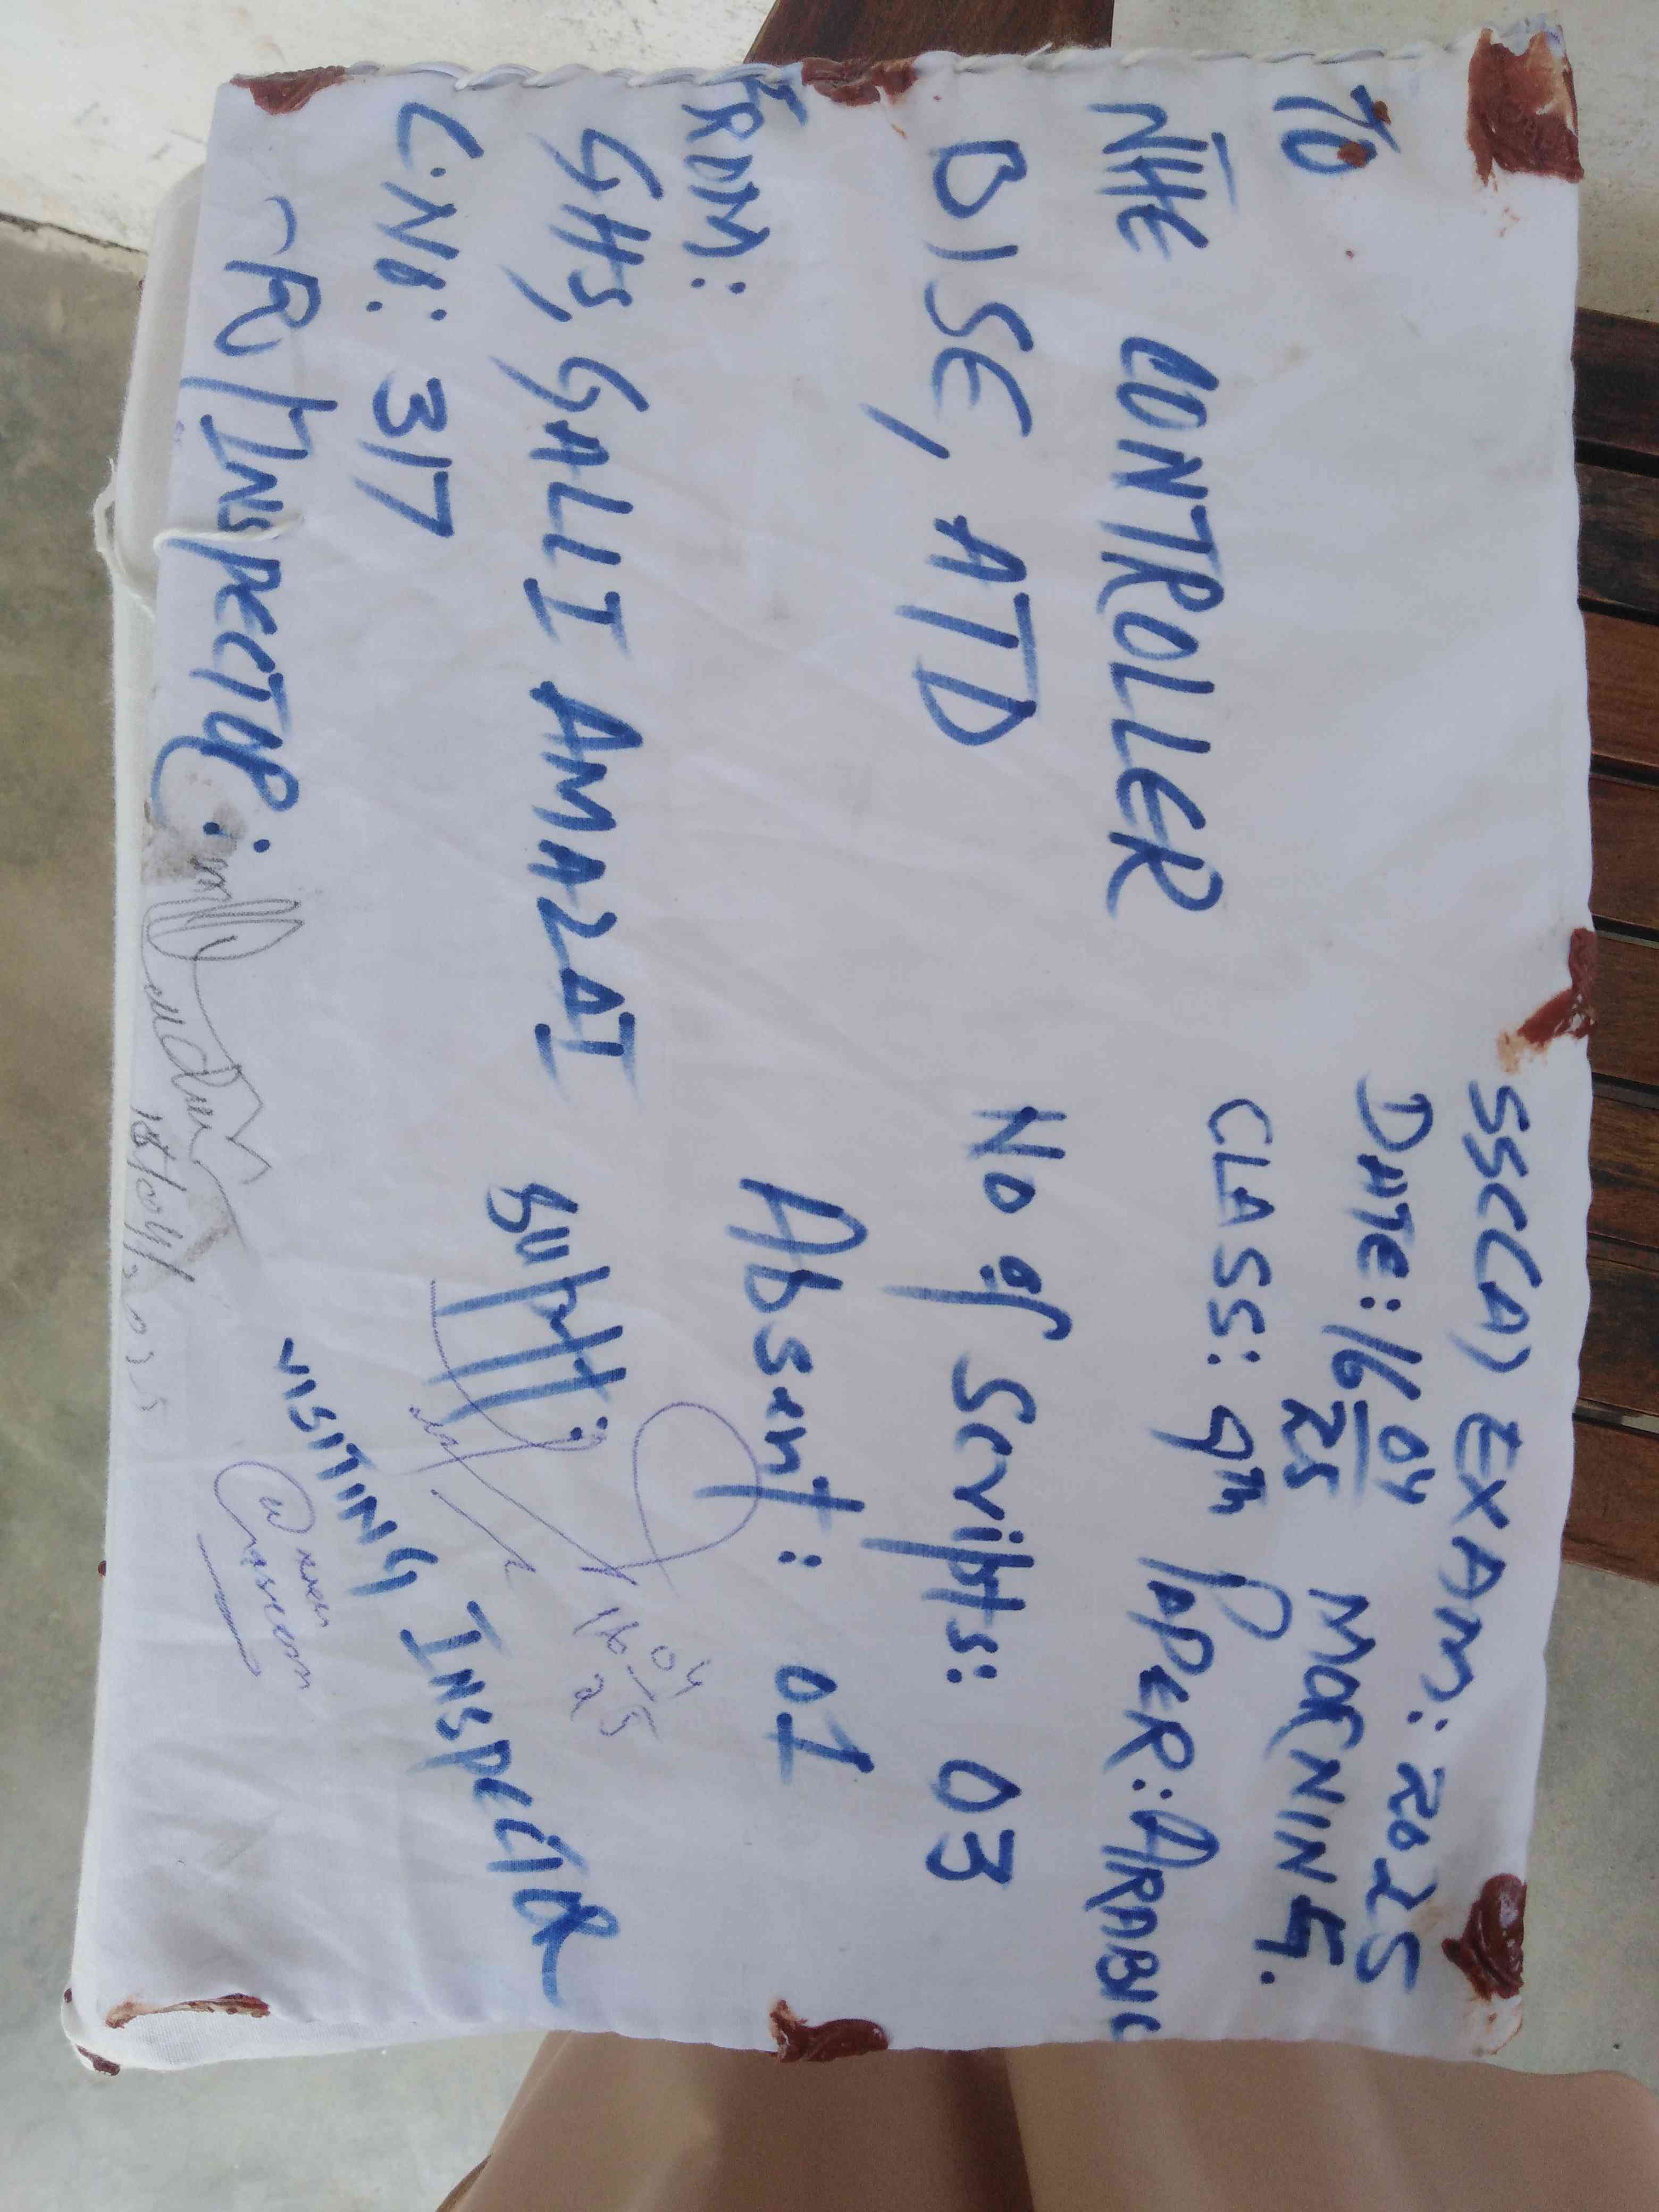 TO
THE CONTROLLER
BISE, ATD
FROM:
GHS, GALI I AMAZAI
C.No: 317
RI/INSPECTOR:
SSC(A) EXAM: 2025
DATE: 16/04/25 MORNING.
CLASS: 9th PAPER: ARABIC
No of Scripts: 03
Absent: 01
Supdtt:
16/04/25
VISITING INSPECTOR